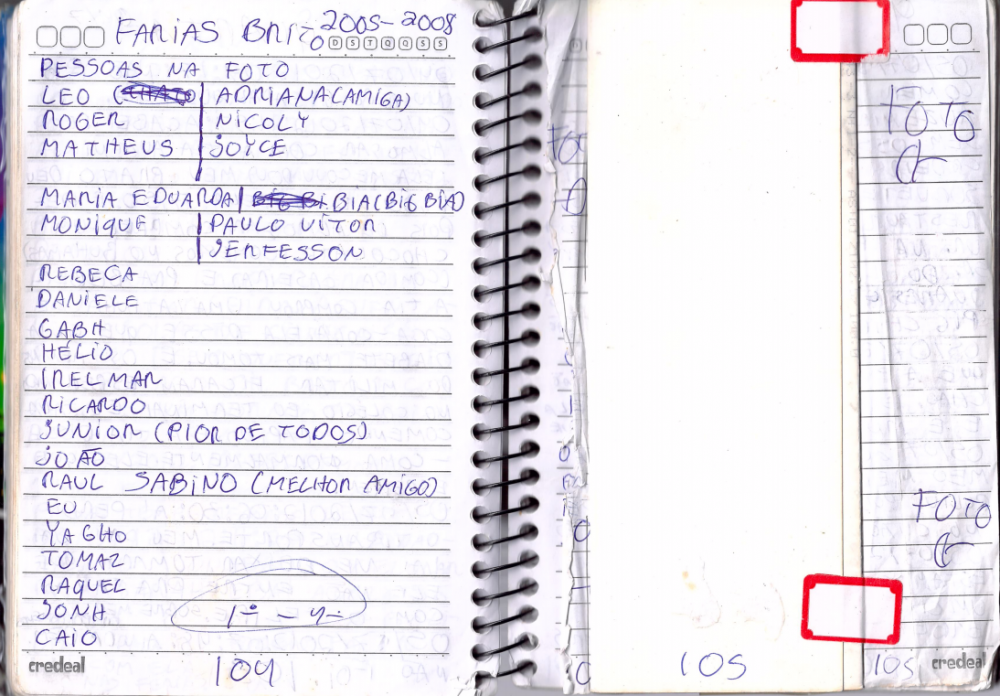 FARIAS BRITO 2005-2008
D S T Q Q S S
PESSOAS NA FOTO
LEO (CHATO) | ADRIANA(AMIGA)
ROGER | NICOLY
MATHEUS | JOYCE
MARIA EDUARDA | BIG BI. BIA(BIG BIA)
MONIQUE | PAULO VITOR
JERFESSON
REBECA
DANIELE
GABH
HÉLIO
IRELMAR
RICARDO
JUNIOR (PIOR DE TODOS)
JOÃO
RAUL SABINO (MELHOR AMIGO)
EU
YAGHO
TOMAZ
RAQUEL
JONH
CAIO
credeal
104
FOTO
FOTO
105
105
credeal